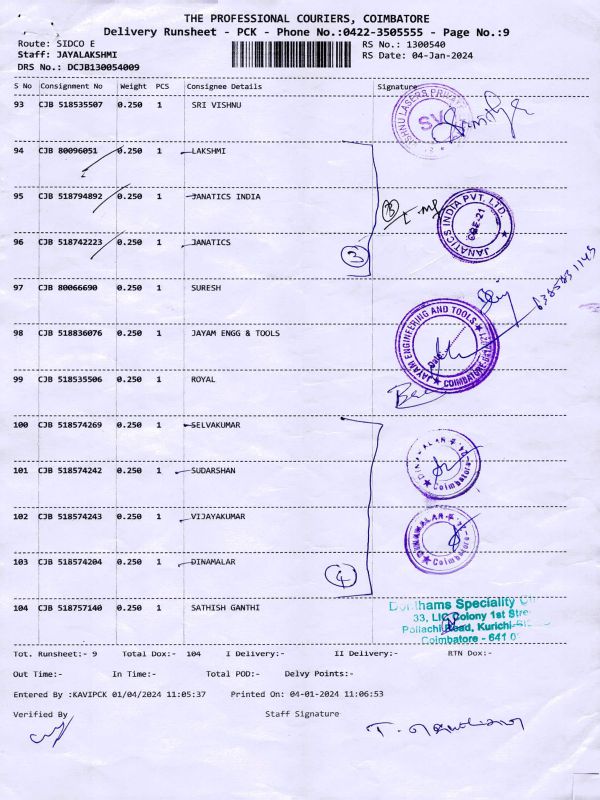 THE PROFESSIONAL COURIERS, COIMBATORE
Delivery Runsheet - PCK - Phone No.:0422-3505555 - Page No.:9
Route: SIDCO E RS No.: 1300540
Staff: JAYALAKSHMI RS Date: 04-Jan-2024
DRS No.: DCJB130054009
S No Consignment No Weight PCS Consignee Details Signature
93 CJB 518535507 0.250 1 SRI VISHNU
94 CJB 80096051 0.250 1 LAKSHMI
95 CJB 518794892 0.250 1 JANATICS INDIA
JANATICS INDIA PVT. LTD.
CBE-21
96 CJB 518742223 0.250 1 JANATICS
3
97 CJB 80066690 0.250 1 SURESH
98 CJB 518836076 0.250 1 JAYAM ENGG & TOOLS
JAYAM ENGINEERING AND TOOLS
99 CJB 518535506 0.250 1 ROYAL
100 CJB 518574269 0.250 1 SELVAKUMAR
101 CJB 518574242 0.250 1 SUDARSHAN
Coimbatore
102 CJB 518574243 0.250 1 VIJAYAKUMAR
Coimbatore
103 CJB 518574204 0.250 1 DINAMALAR
4
104 CJB 518757140 0.250 1 SATHISH GANTHI
Speciality
33, LIC Colony 1st
Pollachi Road, Kurichi
Coimbatore - 641
Tot. Runsheet:- 9 Total Dox:- 104 I Delivery:- II Delivery:- RTN Dox:-
Out Time:- In Time:- Total POD:- Delvy Points:-
Entered By :KAVIPCK 01/04/2024 11:05:37 Printed On: 04-01-2024 11:06:53
Verified By Staff Signature